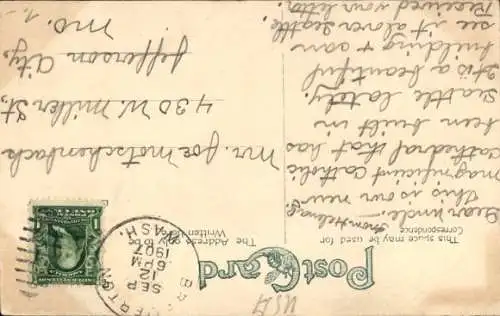 Post Card
This space may be used for
Correspondence
The Address only to be
Written
BREMERTON
WASH.
SEP
12
6 PM
1907
Dear uncle:-
This is our new
magnificent Catholic
Cathedral that has
been built in
Seattle lately.
It is a beautiful
building + can
see it all over Seattle.
Received your letter.
From Helena S.
Mr. Joe Motschenbach
430 W. Miller St,
Jefferson City,
Mo.
USA